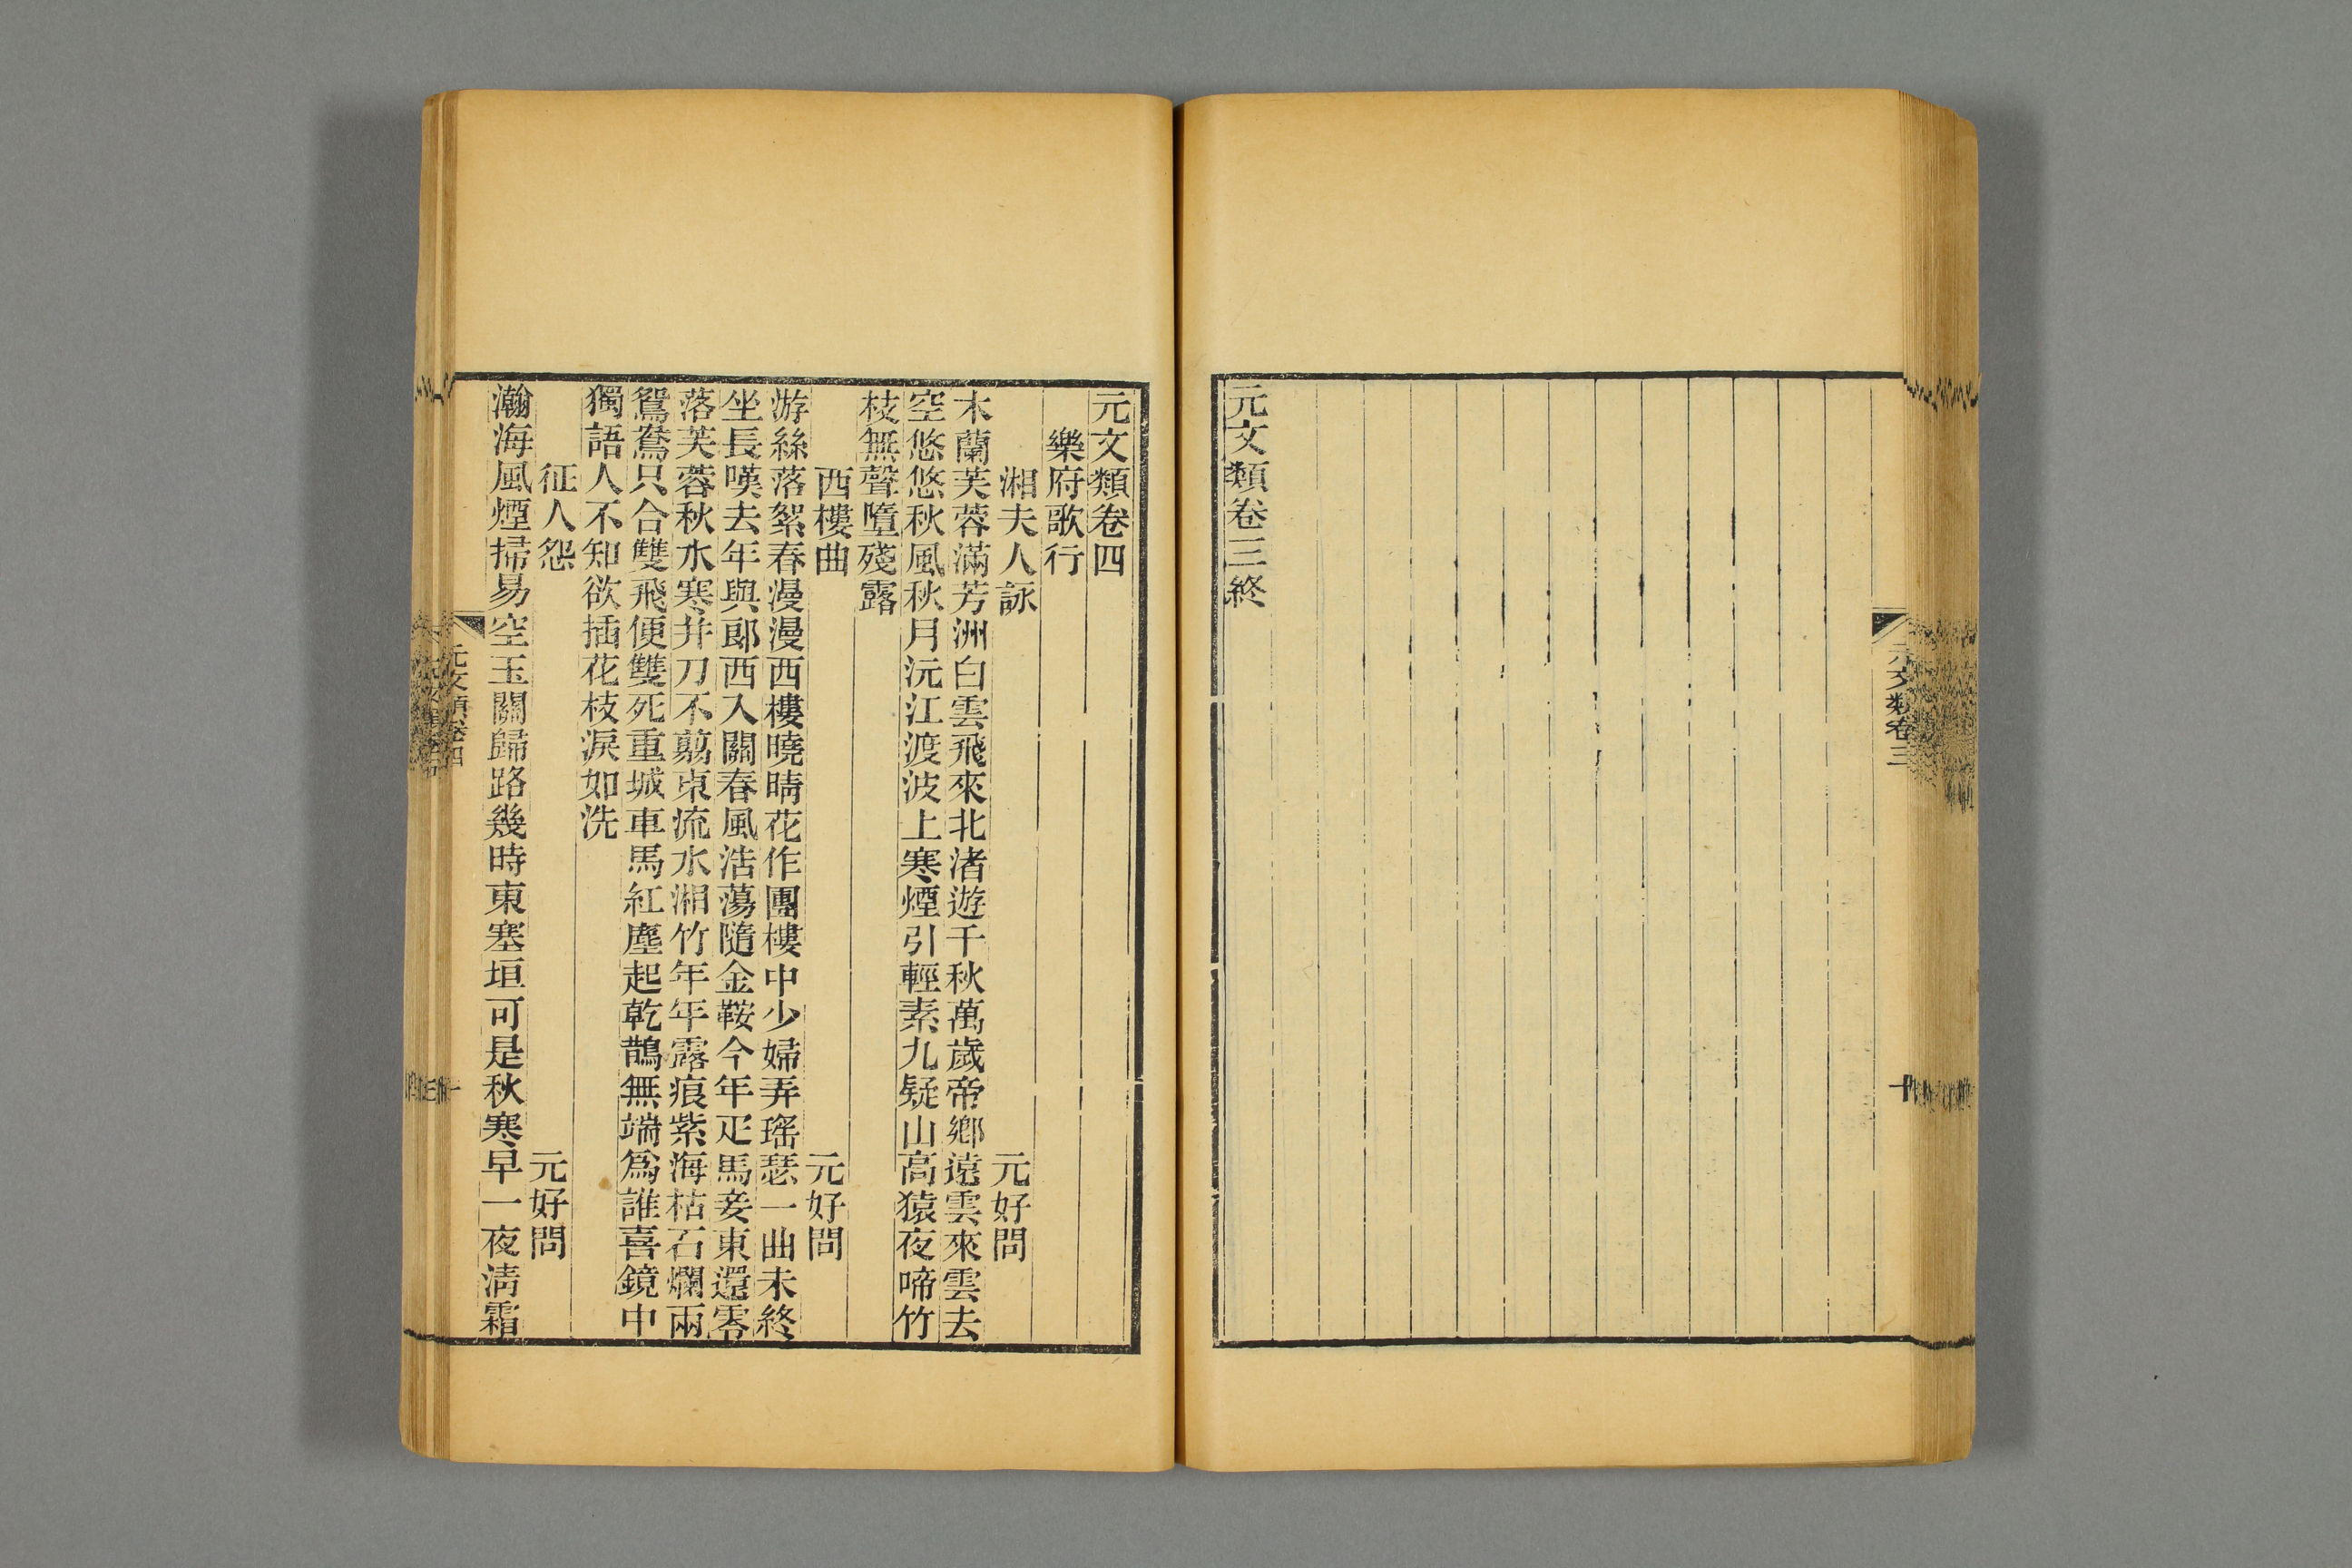 元文類卷三
十
元文類卷三終
元文類卷四
樂府歌行
湘夫人詠　元好問
木蘭芙蓉滿芳洲白雲飛來北渚遊千秋萬歲帝鄉遠雲來雲去
空悠悠秋風秋月沅江渡波上寒煙引輕素九疑山高猿夜啼竹
枝無聲墮殘露
西樓曲　元好問
游絲落絮春漫漫西樓曉晴花作團樓中少婦弄瑤瑟一曲未終
坐長嘆去年與郎西入關春風浩蕩隨金鞍今年疋馬妾東還零
落芙蓉秋水寒并刀不剪東流水湘竹年年露痕紫海枯石爛兩
鴛鴦只合雙飛便雙死重城車馬紅塵起乾鵲無端爲誰喜鏡中
獨語人不知欲插花枝淚如洗
征人怨　元好問
瀚海風煙掃易空玉關歸路幾時東塞垣可是秋寒早一夜清霜
元文類卷四
一